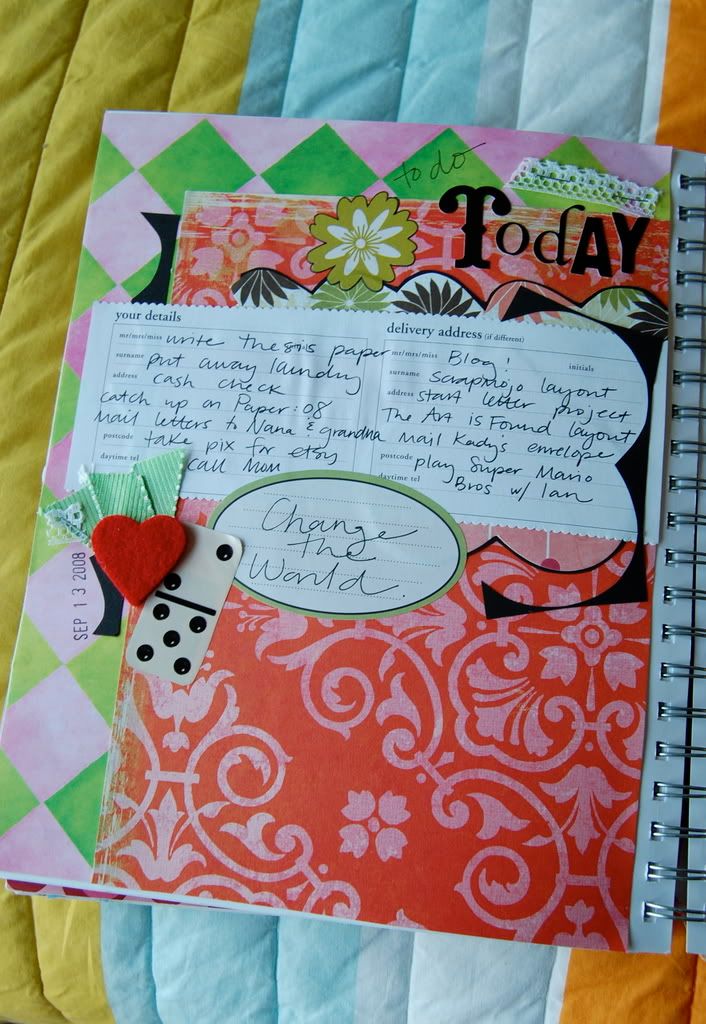 to do
TodAY
your details
mr/mrs/miss write thesis paper
surname put away laundry
address cash check
catch up on Paper: 08
Mail letters to Nana & grandma
postcode take pix for etsy
daytime tel call Mom
delivery address (if different)
mr/mrs/miss Blog! initials
surname scrapmojo layout
address start letter project
The Art is Found layout
mail Kady's envelope
postcode play Super Mario
daytime tel Bros w/ Ian
Change
The
World.
SEP 13 2008